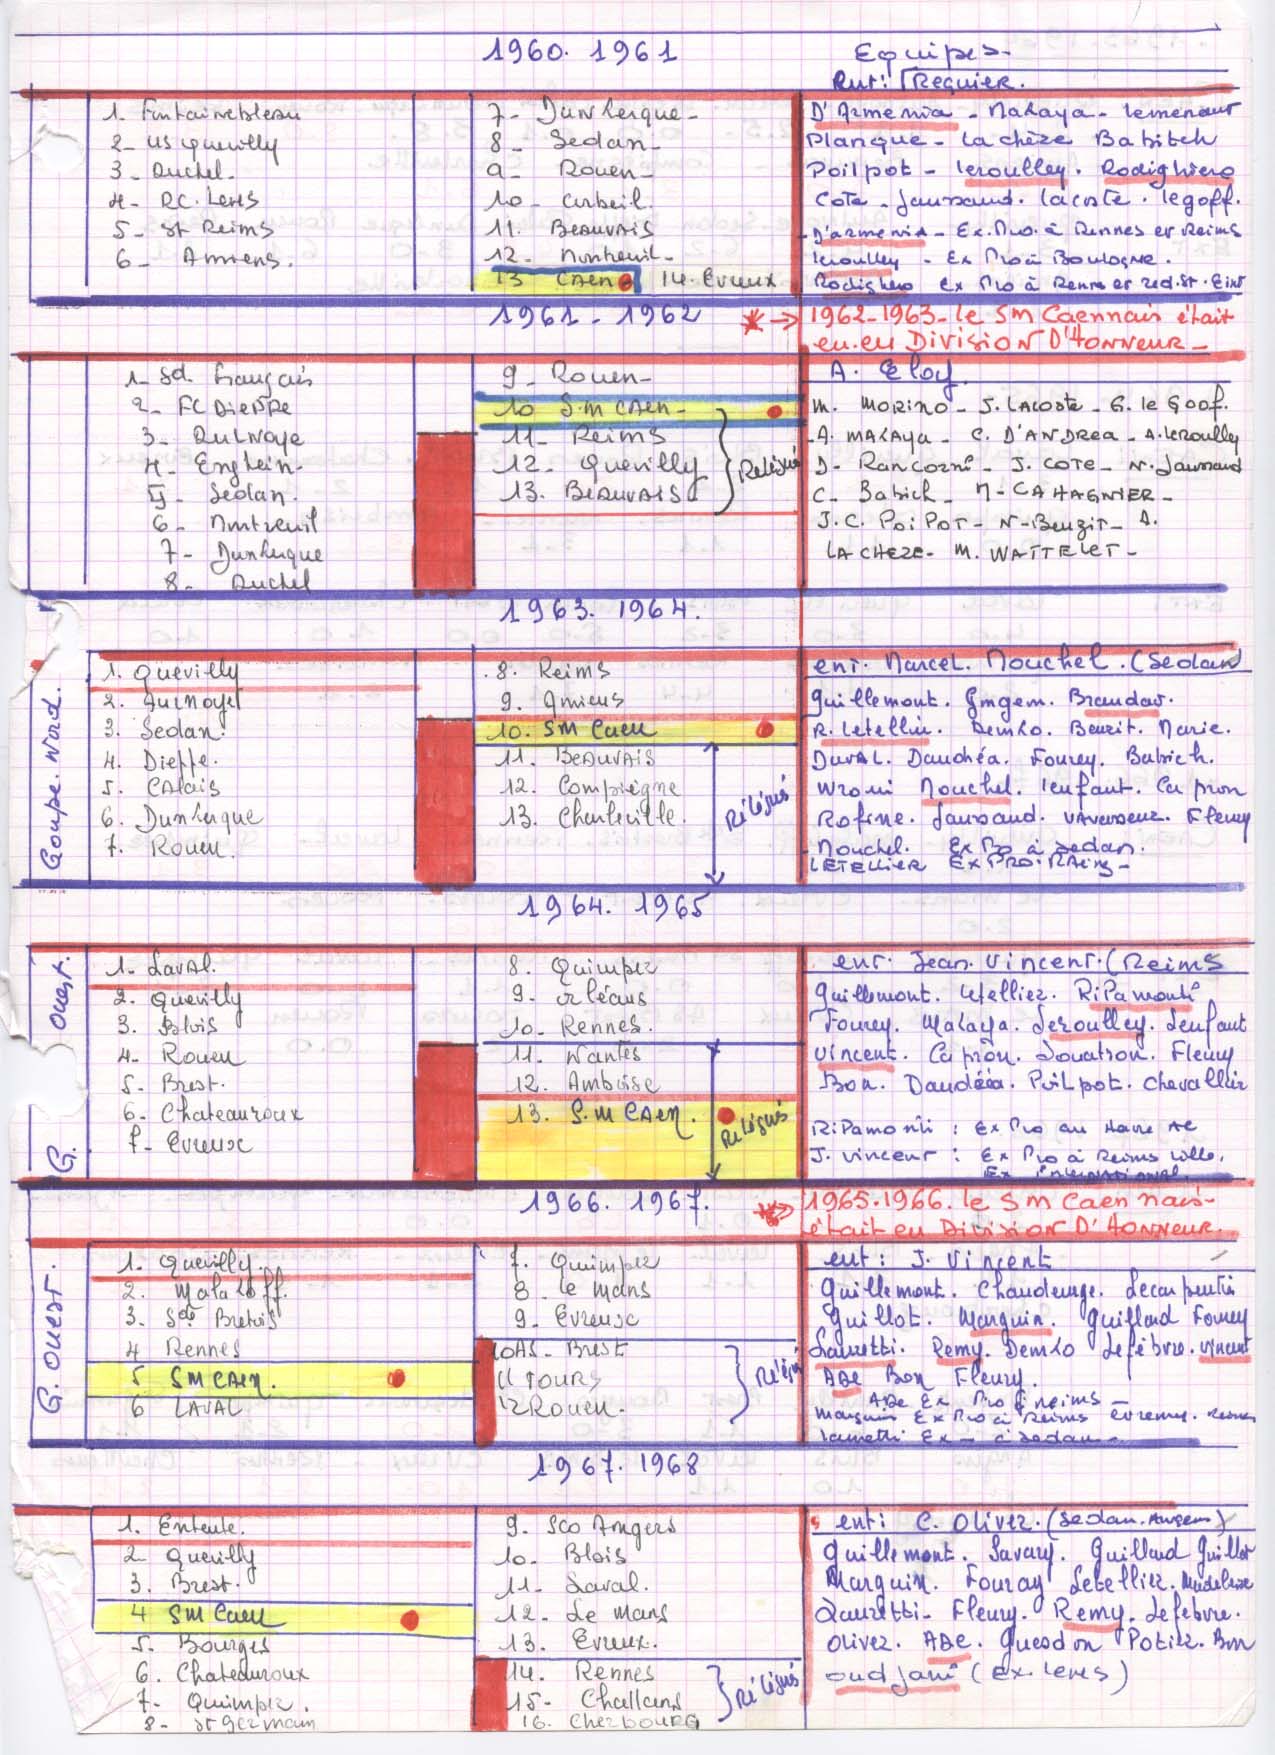 1960. 1961
Equipes
ent: Requier.
1. Fontainebleau
2- US Quevilly
3- Auchel.
4- RC. Lens
5- St Reims
6- Amiens.
7- Dunkerque-
8- Sedan-
9- Rouen-
10- Corbeil.
11. Beauvais
12- Montreuil-
13 CAEN 14. Evreux
D'Armenia - Mahaya - Lemenant
Planque - Lachèze Babitch
Poilpot - Leroulley. Rodighiero
Cote - Jaussaud. Lacoste. Legoff.
D'armenia - Ex. Pro. à Rennes et Reims
Leroulley - Ex Pro à Boulogne.
Rodighero Ex Pro à Rennes et red. St.
1961 - 1962
1962-1963- le SM Caennais était
en en DIVISION D'HONNEUR-
1- Sd. Français
2- FC Dieppe
3- AULNOYE
4- Enghein-
5- Sedan.
6- Montreuil
7- Dunkerque
8- Auchel
9- Rouen-
10 S.M CAEN-
11- Reims
12- Quevilly
13. BEAUVAIS
Relégué
A. Eloy
M. MORINO - J. LACOSTE - G. le Goof.
A. MALAYA - C. D'ANDREA - A. LEROULLY
D- RANCOZNI - J. COTE - N. Jaussaud
C. Babich - M- CAHAGNIER-
J.C. POIPOT- N-Benzit- A.
LACHEZE- M. WATTELET-
1963. 1964.
Goupe. Nord.
1. Quevilly
2. Aulnoyel
3. Sedan.
4. Dieppe.
5. CALais
6. Dunkerque
7. Rouen.
8. Reims
9. Amiens
10. SM Caen
11. BEAUVAIS
12. Compiègne
13. Charleville.
Rélégués
ent. Marcel. Mouchel. (Sedan
Guillemont. Gmgem. Brandao.
R. Letellier. Demko. Benzit. Marie.
DUVAL. Daudhéa. Fourey. Babich.
Wroni Mouchel. Lenfant. Capron
Rofine. Jaussaud. VAvasseur. Fleury
Mouchel. Ex Pro à Sedan.
LETELLIER Ex PRO: REims-
1964. 1965
G. Ouest.
1. LavAl.
2. Quevilly
3. Blois
4. Rouen
5. Brest.
6. Chateauroux
7- Evreux
8. Quimper
9- orléans
10- Rennes.
11. Nantes
12. Amboise
13. S.M CAEN.
Relégués
ent. Jean. Vincent. (Reims
Guillemont. Letellier. RiPamonti
Fourey. Malaya. Leroulley. Lenfant
Vincent. Capron. Douatron. Fleury
Bon. Daudéa. Poilpot. Chevallier
RiPamonti : Ex Pro au Havre AC
J. Vincent : Ex Pro à Reims Lille.
Ex international
1966. 1967.
1965.1966. le SM Caennais-
était en Division D'HONNEUR.
G. Ouest.
1. Quevilly.
2. Malakoff.
3. Sde Bretois
4 Rennes
5 SM CAEN.
6 LAVAL
7. Quimper
8 le Mans
9- Evreux
10 AS- Brest
11 TOURS
12 Rouen.
ent: J. Vincent
Guillemont. Chaudeurge. Lecarpentier
Guillot. Marguin. Guillard Fourey
Lauretti. Remy. Demko Lefèbvre. Vincent
ABe Bon Fleury.
ABe Ex Pro à reims-
Marguin Ex Pro à Reims et remy. Rennes
Lauretti Ex - à Sedan-
1967. 1968
1. Entente.
2 Quevilly
3. Brest.
4 SM Caen
5. Bourges
6. Chateauroux
7- Quimper.
8- St germain
9. SCO Angers
10- Blois
11- Laval.
12- Le Mans
13. Evreux.
14. Rennes
15- Challans
16. Cherbourg
Rélégués
ent: C. Oliver. (Sedan. Angers)
Guillemont. Savary. Guillard Guillot
Marguin. Fouray Letellier. Madeleine
Lauretti- Fleury. Remy. Lefebvre.
Oliver. ABe. Quesdon Potier. Bon
oudjani (Ex. Lens)